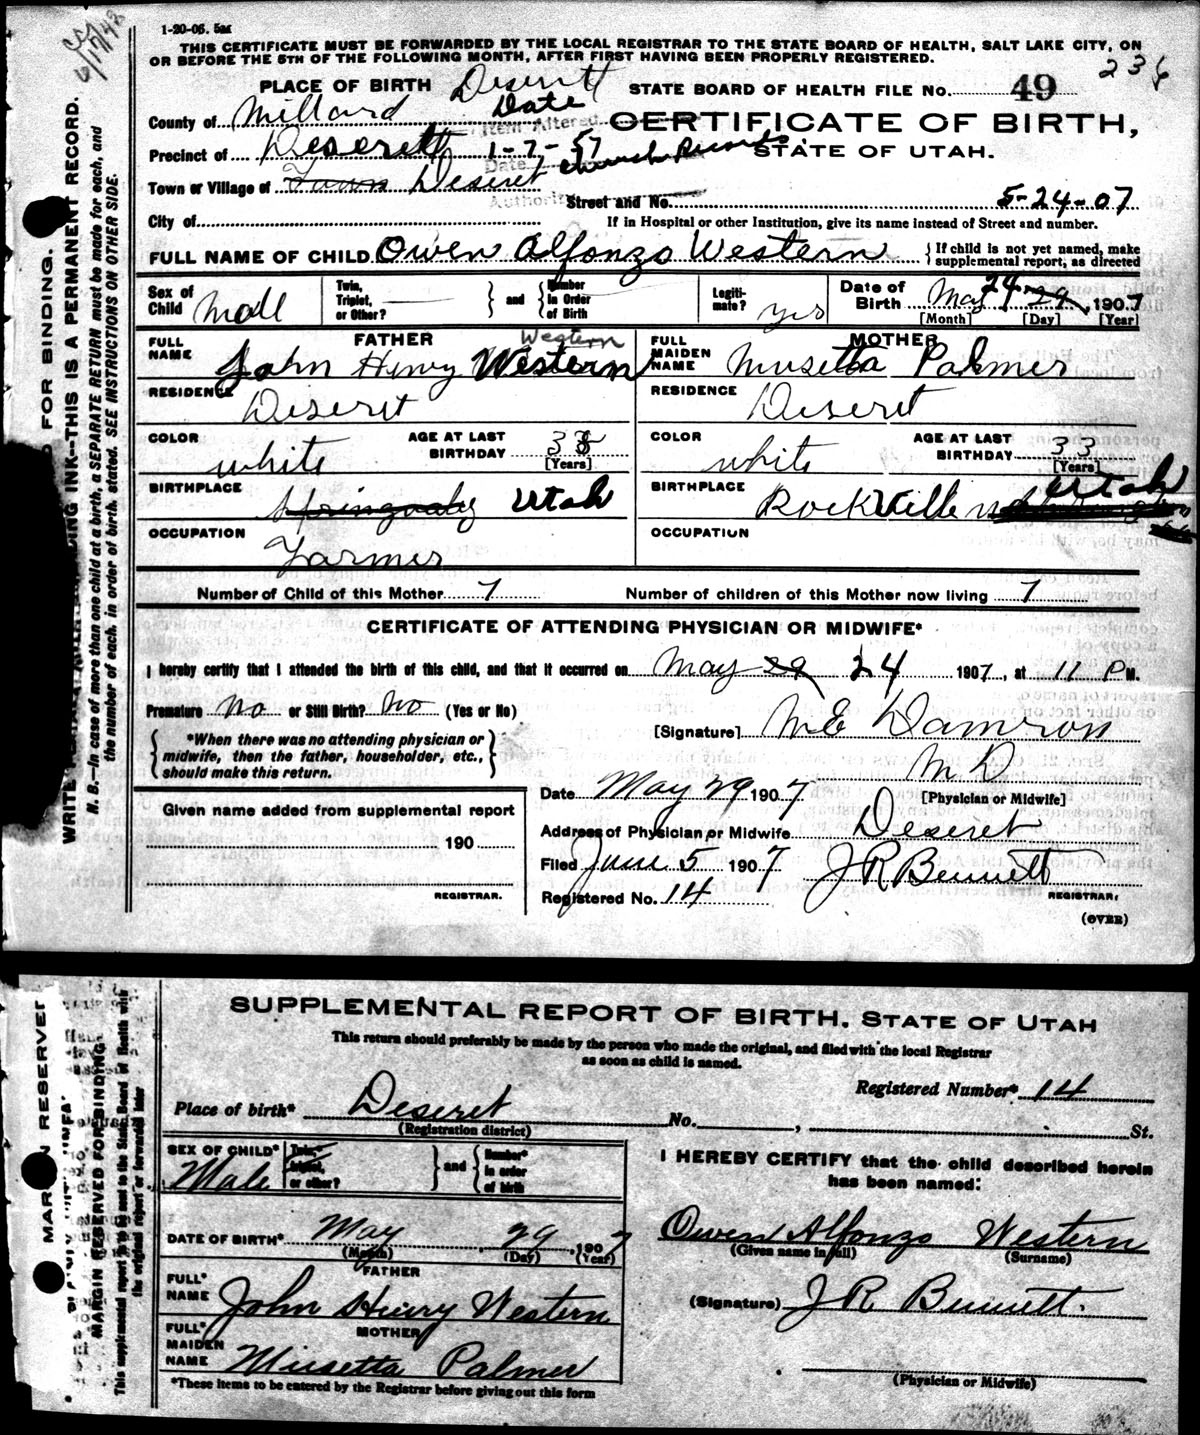 1-20-06. 5M
6/17/42
THIS CERTIFICATE MUST BE FORWARDED BY THE LOCAL REGISTRAR TO THE STATE BOARD OF HEALTH, SALT LAKE CITY, ON
OR BEFORE THE 5TH OF THE FOLLOWING MONTH, AFTER FIRST HAVING BEEN PROPERLY REGISTERED.
236
PLACE OF BIRTH Deserett STATE BOARD OF HEALTH FILE No. 49
County of Millard Date
Item Altered
CERTIFICATE OF BIRTH,
Precinct of Deserett 1-7-57 Church Records
Date
STATE OF UTAH.
Town or Village of Town Deseret
Authority
Street and No. 5-24-07
City of
If in Hospital or other Institution, give its name instead of Street and number.
FULL NAME OF CHILD Owen Alfonzo Western { If child is not yet named, make supplemental report, as directed
Sex of Child Mall Twin, Triplet, or Other? } and { Number in Order of Birth Legiti-mate? yes Date of Birth May 24 29, 1907
[Month] [Day] [Year]
FATHER
FULL NAME John Henry Western Western
MOTHER
FULL MAIDEN NAME Musetta Palmer
RESIDENCE Deseret
RESIDENCE Deseret
COLOR white AGE AT LAST BIRTHDAY 38 [Years]
COLOR white AGE AT LAST BIRTHDAY 33 [Years]
BIRTHPLACE Utah
BIRTHPLACE Rockville Utah
OCCUPATION Farmer
OCCUPATION
Number of Child of this Mother 7 Number of children of this Mother now living 7
CERTIFICATE OF ATTENDING PHYSICIAN OR MIDWIFE*
I hereby certify that I attended the birth of this child, and that it occurred on May 29 24 1907, at 11 P M.
Premature No or Still Birth? No (Yes or No)
[Signature] M E Damron
M D
[Physician or Midwife]
{ *When there was no attending physician or
midwife, then the father, householder, etc.,
should make this return. }
Date May 29 1907
Given name added from supplemental report
190
REGISTRAR.
Address of Physician or Midwife Deseret
Filed June 5 1907 J R Bennett
Registered No. 14 REGISTRAR.
(OVER)
FOR BINDING.
WRITE INK—THIS IS A PERMANENT RECORD.
N. B.—In case of more than one child at a birth, a SEPARATE RETURN must be made for each, and
the number of each, in order of birth, stated. SEE INSTRUCTIONS ON OTHER SIDE.
SUPPLEMENTAL REPORT OF BIRTH. STATE OF UTAH
This return should preferably be made by the person who made the original, and filed with the local Registrar
as soon as child is named.
Registered Number* 14
Place of birth* Deseret No. , St.
(Registration district)
SEX OF CHILD* Male Twin, triplet, or other? } and { Number* in order of birth
I HEREBY CERTIFY that the child described herein
has been named:
DATE OF BIRTH* May 29, 1907
(Month) (Day) (Year)
Owen Alfonzo Western
(Given name in full) (Surname)
FATHER
FULL* NAME John Henry Western
(Signature) J R Bennett.
MOTHER
FULL* MAIDEN NAME Musetta Palmer
(Physician or Midwife)
*These items to be entered by the Registrar before giving out this form
MARGIN RESERVED
MARGIN RESERVED FOR BINDING
This supplemental report is to be sent to the State Board of Health with
the original report or forwarded later